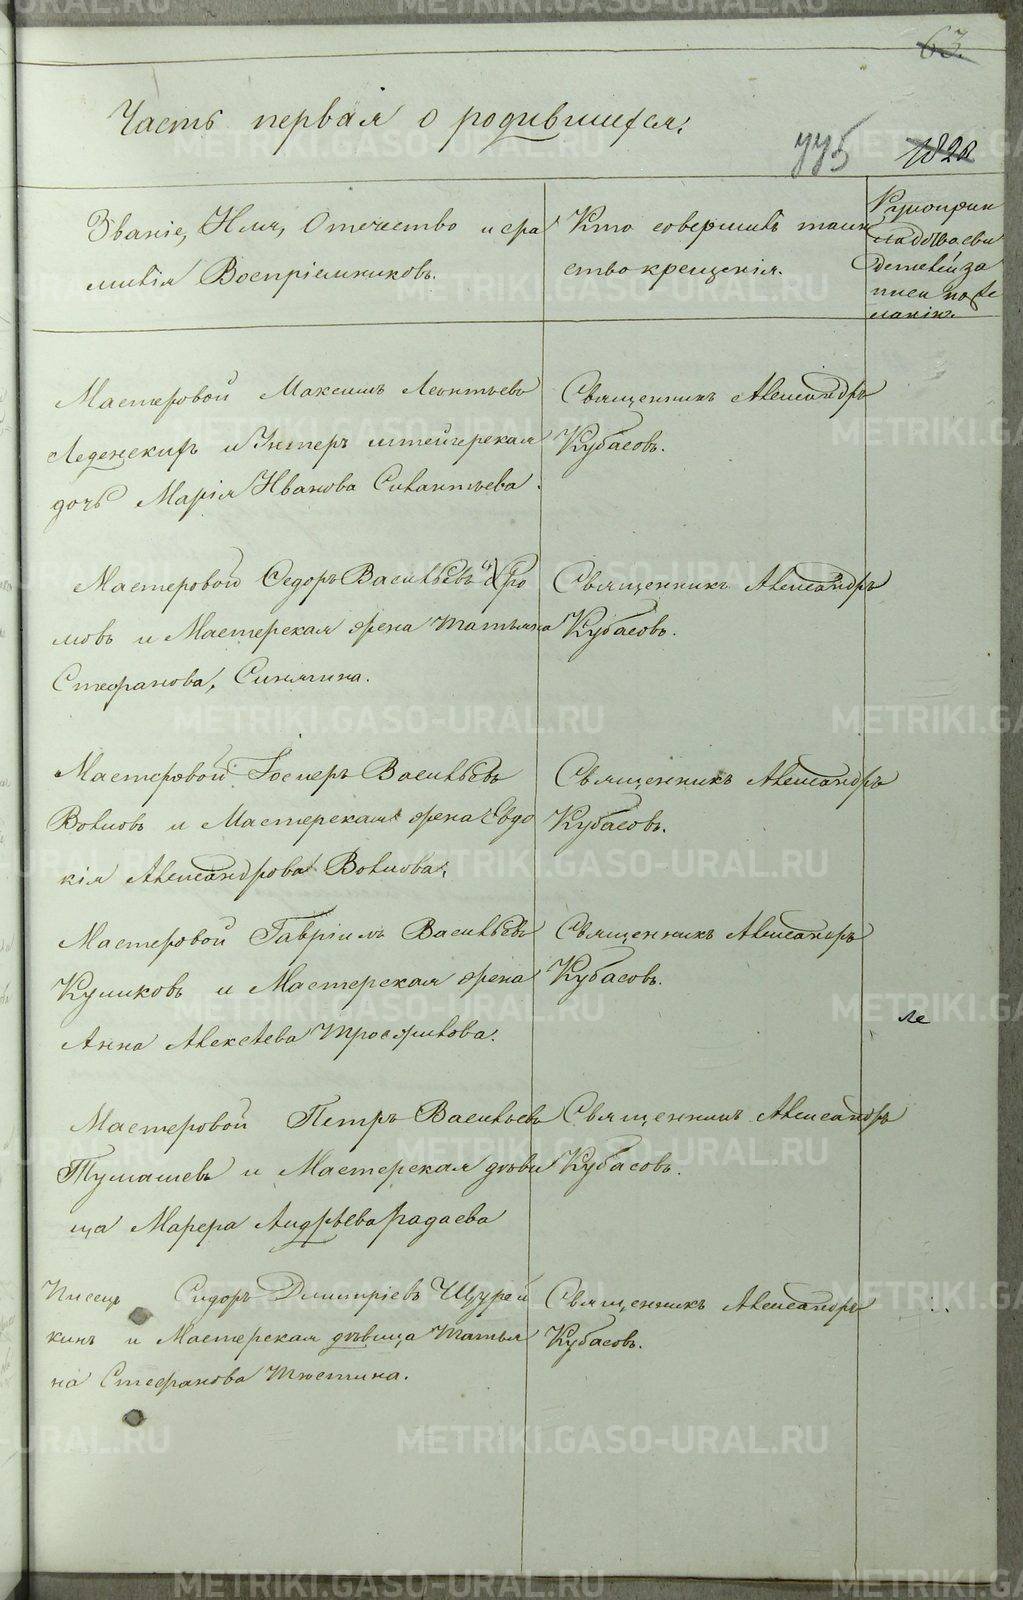 63
Часть первая о родившихся.
775 1828
Званіе, Имя, Отчество и фа
миліи Воспріемниковъ.
Кто совершилъ таин
ство крещенія.
Рукоприк
ладство сви
детелей за
писи по же
ланію.
Мастеровой Максимъ Леонтьевъ
и Унтеръ штейгерская
дочь Марія Иванова Силантьева.
Священникъ Александръ
Кубасовъ.
Мастеровой Ѳедоръ Васильевъ Гро
мовъ и Мастерская жена Татьяна
Стефанова, Синягина.
Священникъ Александръ
Кубасовъ.
Мастеровой Іосифъ Васильевъ
Волковъ и Мастерская жена Евдо
кія Александрова Волкова.
Священникъ Александръ
Кубасовъ.
Мастеровой Гавріилъ Васильевъ
Куликовъ и Мастерская жена
Анна Алексѣева Трофимова.
Священникъ Александръ
Кубасовъ.
Мастеровой Петръ Васильевъ
Тумашевъ и Мастерская дѣви
ца Марфа Андрѣева
Священникъ Александръ
Кубасовъ.
Писецъ Сидоръ Димитріевъ Щурей
кинъ и Мастерская дѣвица Татья
на Стефанова Тюстина.
Священникъ Александръ
Кубасовъ.
METRIKI.GASO-URAL.RU